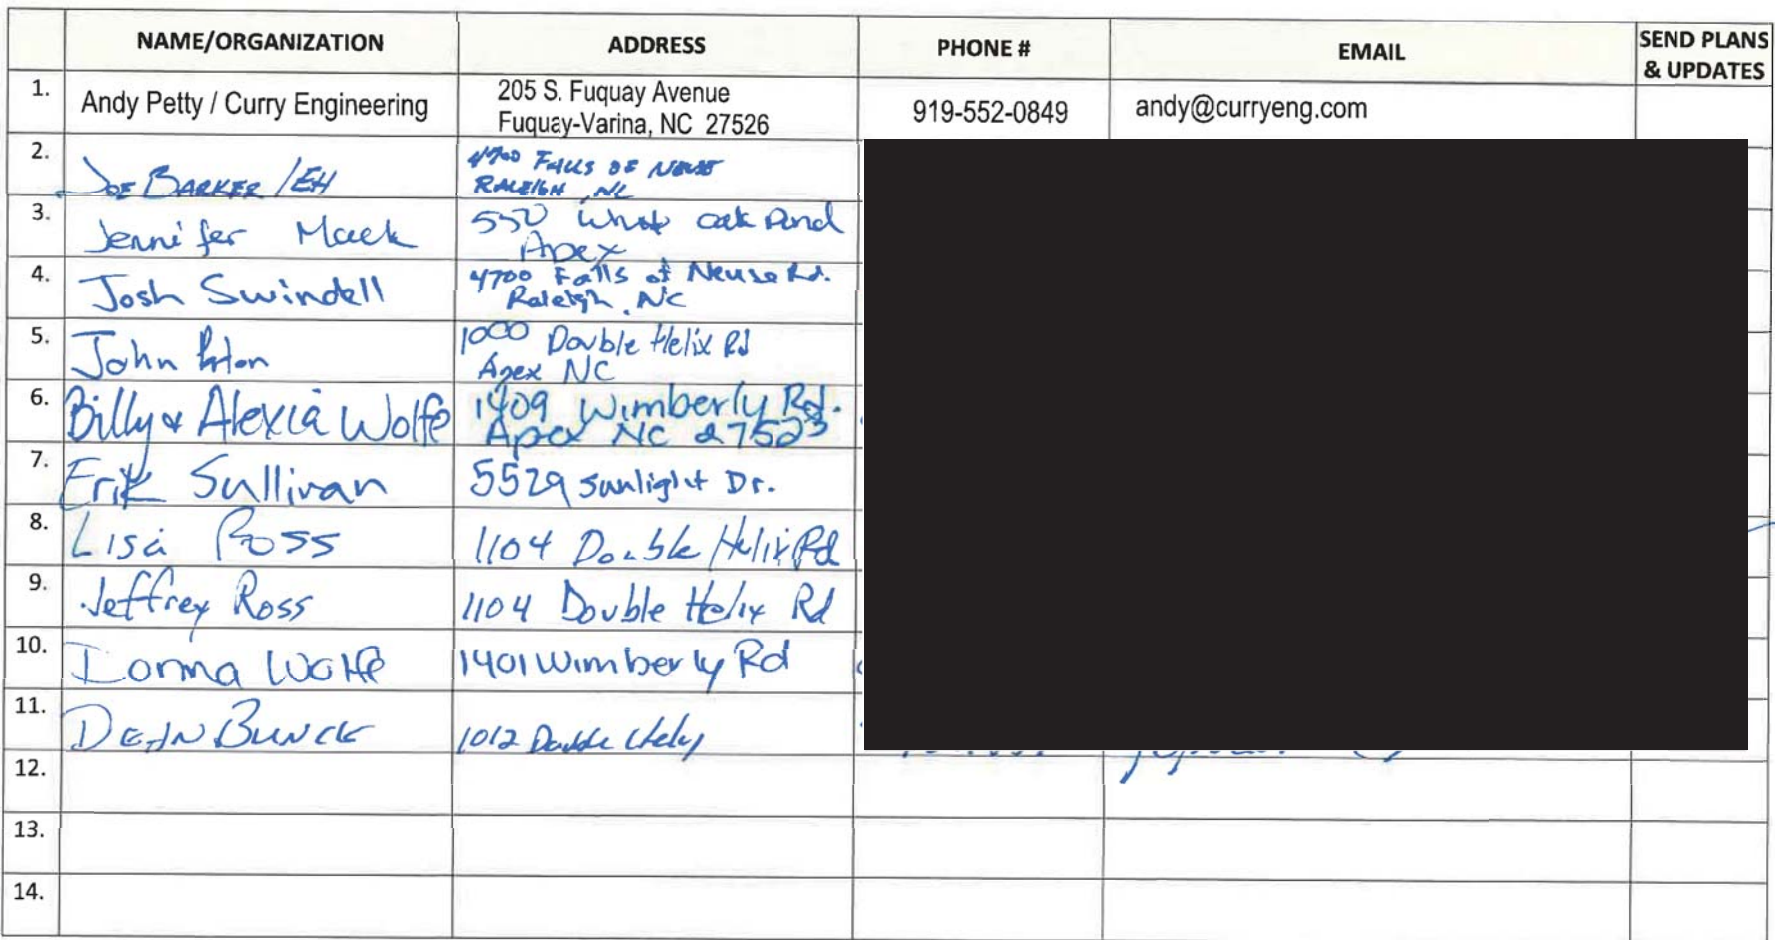 NAME/ORGANIZATION ADDRESS PHONE # EMAIL SEND PLANS
& UPDATES
1. Andy Petty / Curry Engineering 205 S. Fuquay Avenue 919-552-0849 andy@curryeng.com
Fuquay-Varina, NC 27526
2. JOE BARKER / EH 4700 FALLS OF NEUSE
RALEIGH, NC
3. Jennifer Mack 550 oak Pond
Apex
4. Josh Swindell 4700 Falls of Neuse Rd.
Raleigh, NC
5. John 1000 Double Helix Rd
Apex NC
6. Billy & Alexia Wolfe 1409 Wimberly Rd.
Apex NC 27523
7. Erik Sullivan 5529 Sunlight Dr.
8. Lisa Ross 1104 Double Helix Rd
9. Jeffrey Ross 1104 Double Helix Rd
10. Donna Wolfe 1401 Wimberly Rd
11. DEAN BUNCE 1012 Double
12.
13.
14.